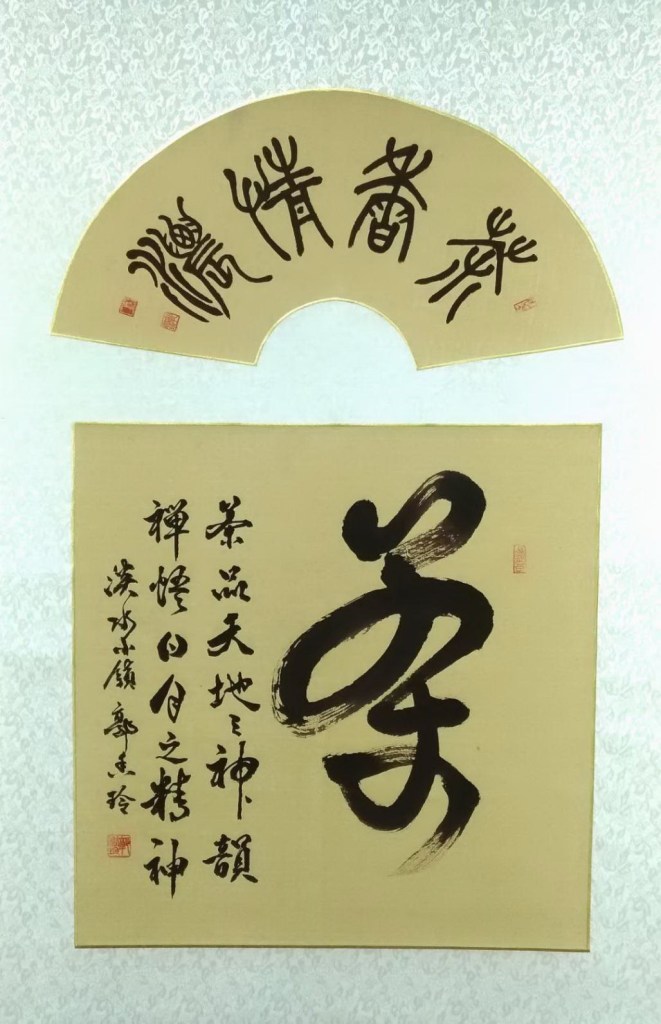 茶香情濃
茶
茶品天地之神韻
禅悟日月之精神
淡水小鎮 郭香玲